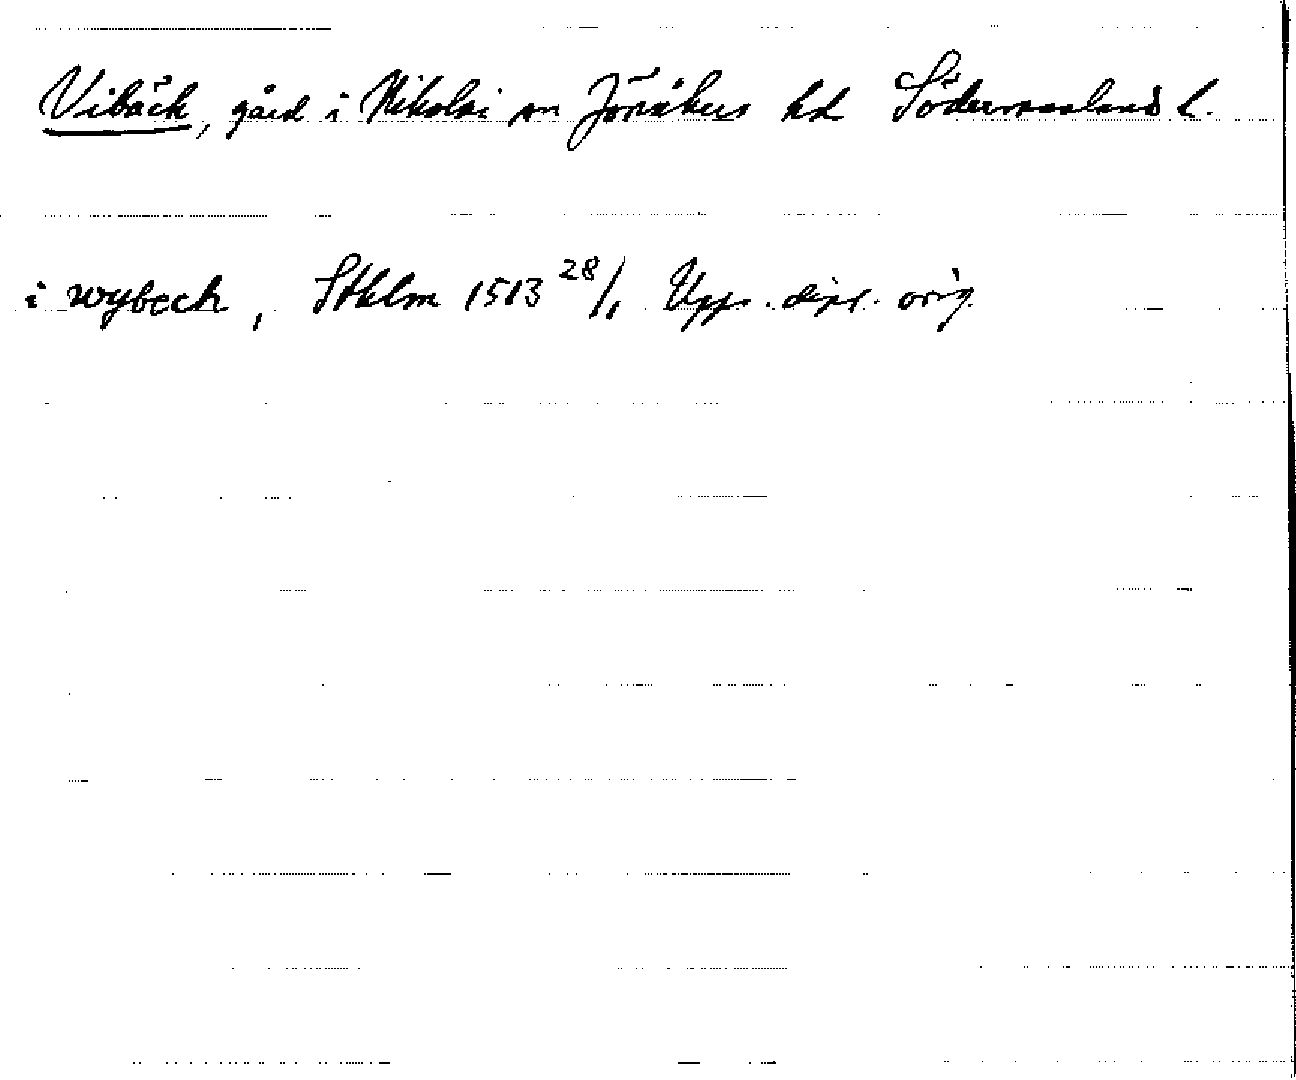 Vibäck, gård i Nikolai sn Jönåkers hd Södermanlands l.
i wybeck, Sthlm 1513 28/1 Upps. dipl. orig.